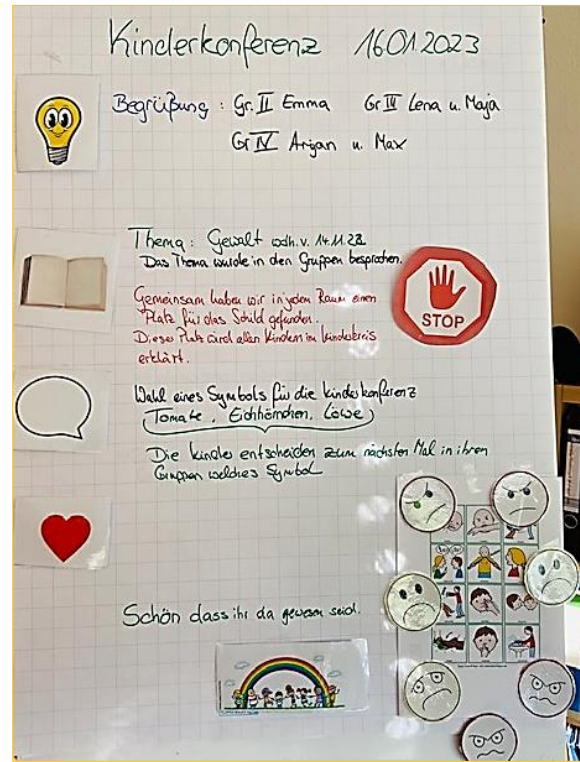 Kinderkonferenz 16.01.2023
Begrüßung : Gr. II Emma Gr III Lena u. Maja
Gr IV Arijan u. Max
Thema: Gewalt wdh. v. 14.11.22
Das Thema wurde in den Gruppen besprochen.
Gemeinsam haben wir in jedem Raum einen
Platz für das Schild gefunden.
Dieser Platz wird allen Kindern im Kinderkreis
erklärt.
STOP
Wahl eines Symbols für die Kinderkonferenz
Tomate, Eichhörnchen, Löwe
Die Kinder entscheiden zum nächsten Mal in ihren
Gruppen welches Symbol
Schön dass ihr da gewesen seid.